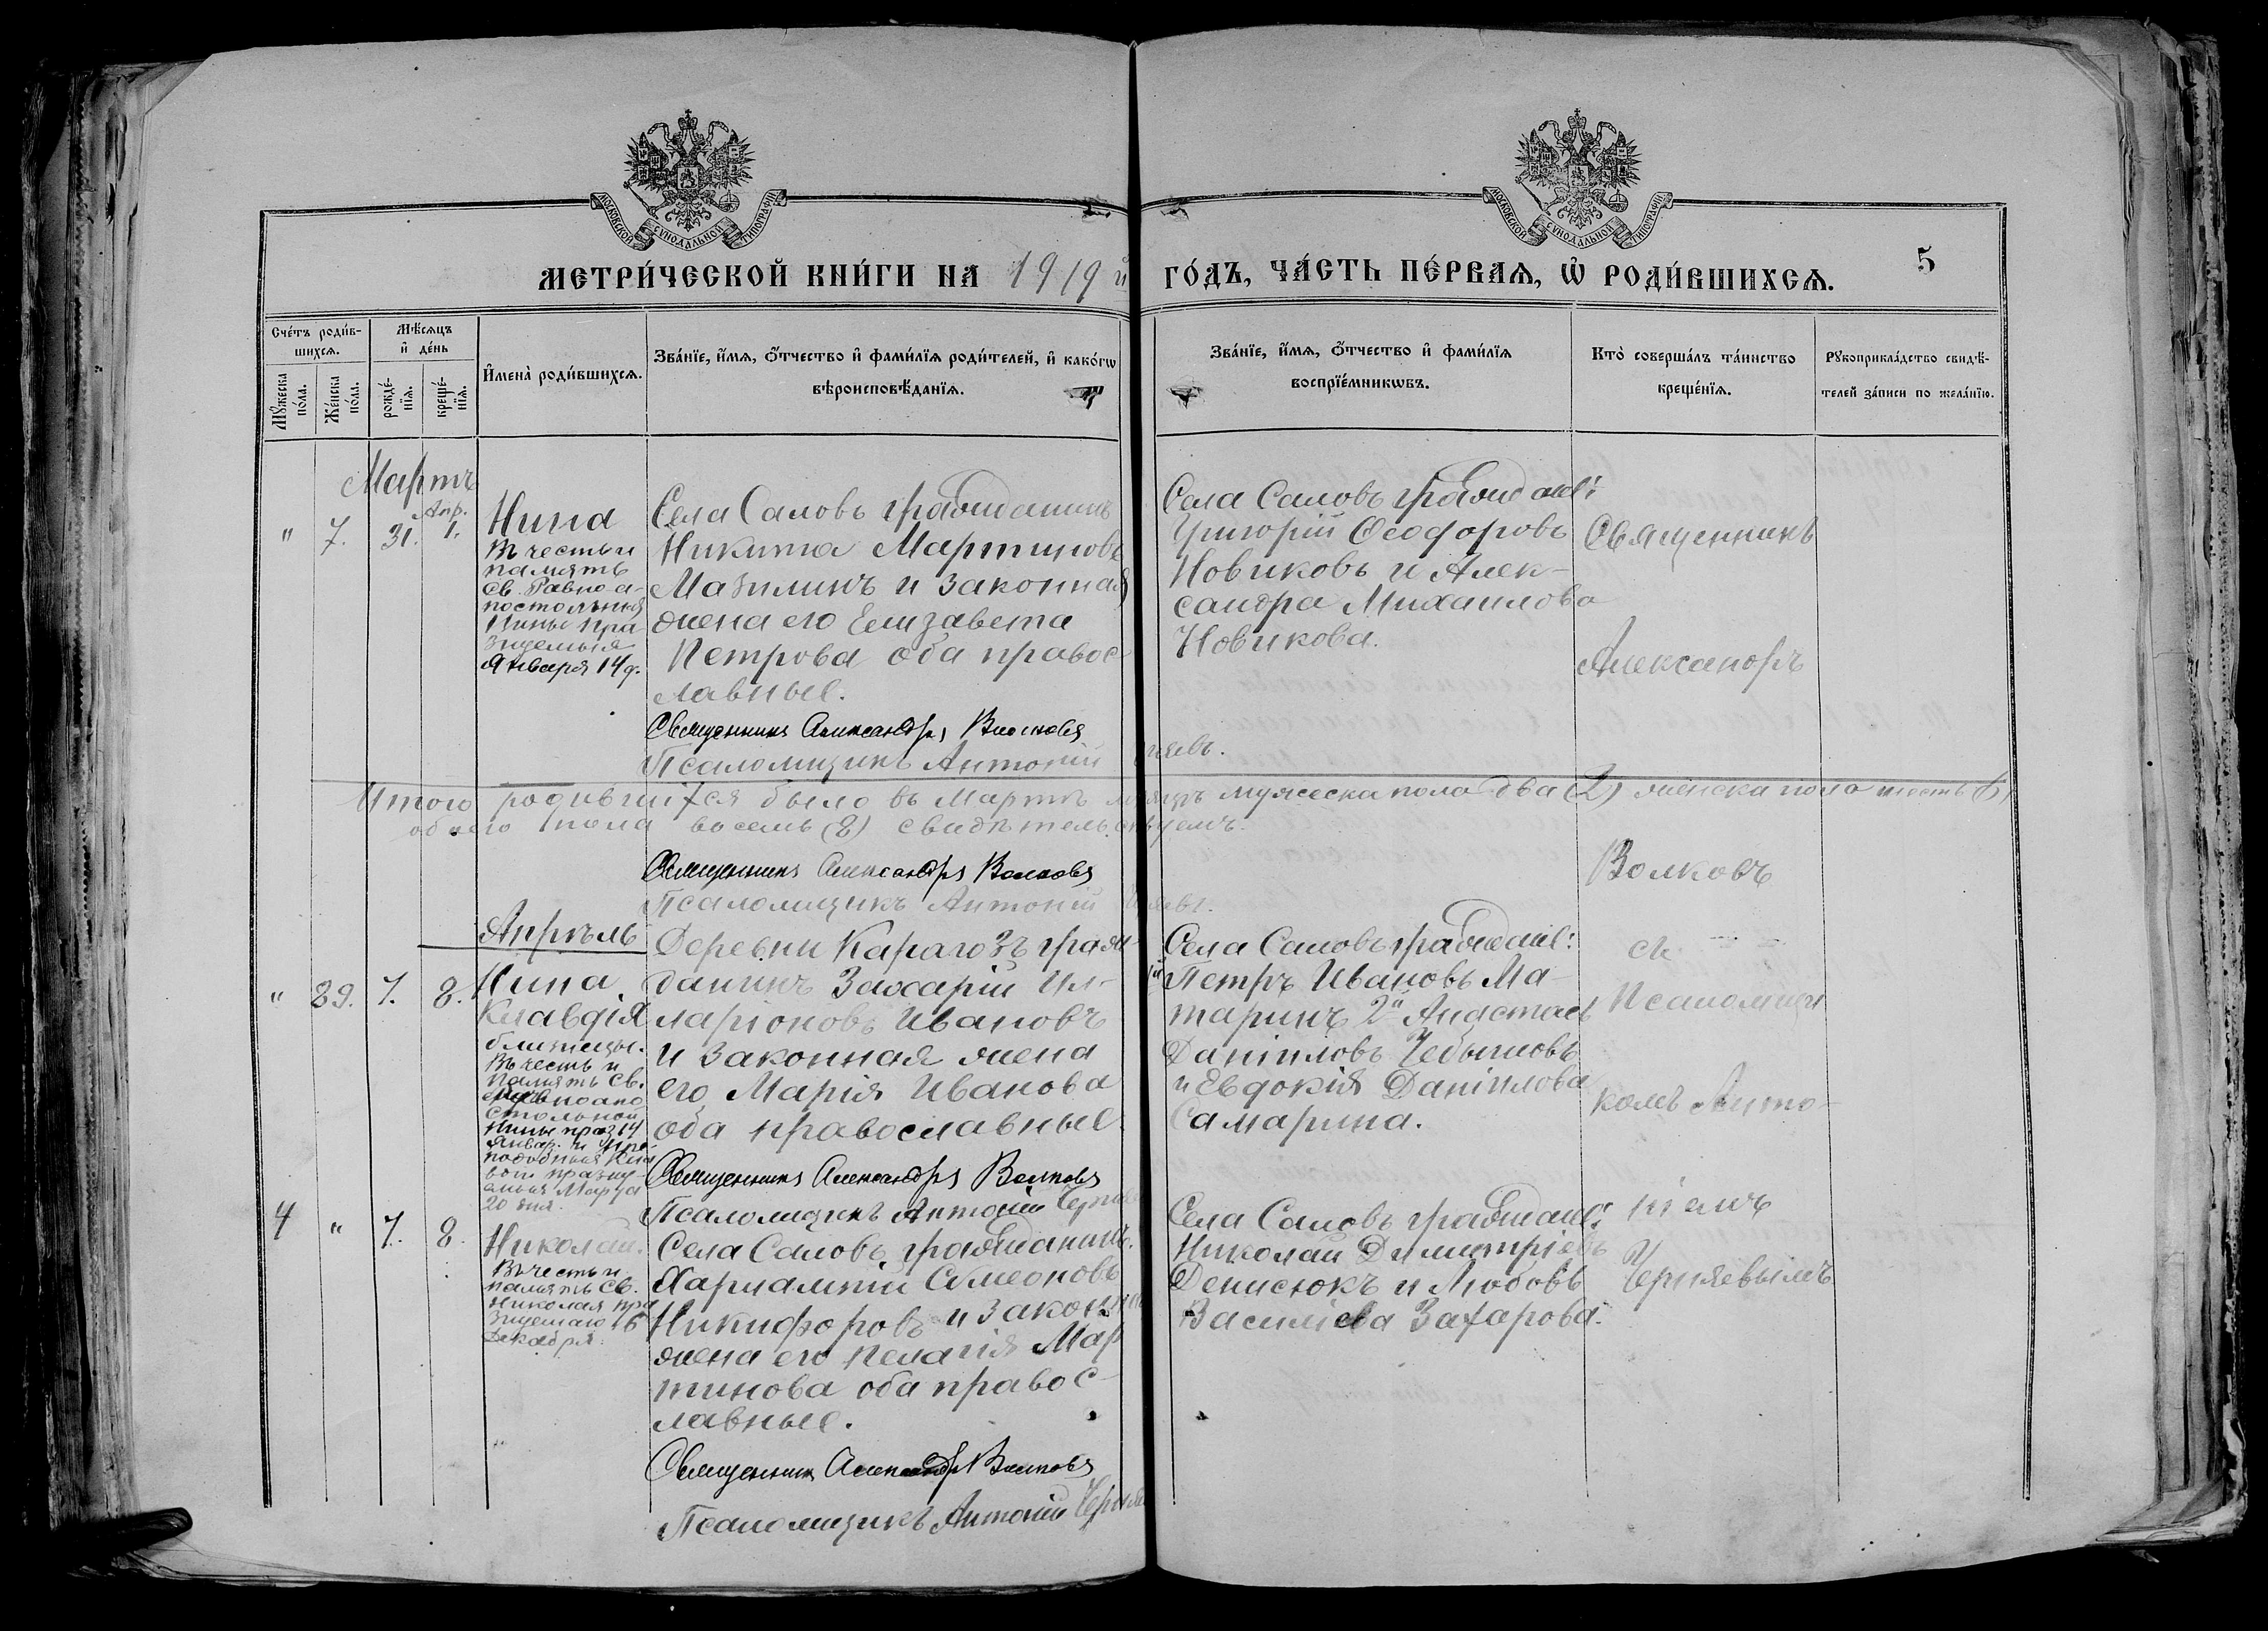 МОСКОВСКОЙ СѴНОДАЛЬНОЙ ТИПОГРАФІИ
МОСКОВСКОЙ СѴНОДАЛЬНОЙ ТИПОГРАФІИ
МЕТРИ́ЧЕСКОЙ КНИ́ГИ НА 1919й
ГО́ДЪ, ЧА́СТЬ ПЕ́РВАѦ, Ѡ РОДИ́ВШИХСѦ.
5
Сче́тъ роди́в-
шихсѧ.
Мꙋжеска
по́ла.
Же́нска
по́ла.
Мѣ́сѧцъ
и҆ де́нь
рожде́-
нїѧ.
креще́-
нїѧ.
И҆мена̀ роди́вшихсѧ.
Зва́нїе, и҆́мѧ, ѻ҆́тчество и҆ фами́лїѧ роди́телей, и҆ како́гѡ
вѣроисповѣ́данїѧ.
Зва́нїе, и҆́мѧ, ѻ҆́тчество и҆ фами́лїѧ
воспрїе́мникѡвъ.
Кто̀ соверша́лъ та́инство
креще́нїѧ.
Рꙋкоприкла́дство свидѣ́-
телей за́писи по жела́нїю.
Мартъ
Апр.
" 7. 31. 1.
Нина
Въ честь и
память
св. Равноа-
постольныя
Нины пра
зднуемыя
Января 14 д.
Села Саловъ гражданинъ
Никита Мартиновъ
Мазилинъ и законная
жена его Елизавета
Петрова оба правос-
лавные.
Священникъ Александръ Волковъ
Псаломщикъ Антоній
Села Саловъ граждане:
Григорій Ѳеодоровъ
Новиковъ и Алек-
сандра Михаилова
Новикова.
Священникъ
Александръ
Волковъ
съ
Псаломщи
комъ Анто-
ніемъ
Чернявымъ
Итого родившихся было въ Мартѣ мѣсяцѣ мужеска пола два (2) женска пола шесть (6)
обоего пола восемь (8) свидѣтельствуемъ.
Священникъ Александръ Волковъ
Псаломщикъ Антоній
Апрѣль
" 89. 7. 8.
Нина
Клавдія
близнецы.
Въ честь и
память св.
равноапо
стольной
Нины праз 14
Январ. и
Марта
20 дня.
Деревни Карагозъ граж-
данинъ Захарій Ил-
ларіоновъ Ивановъ
и законная жена
его Марія Иванова
оба православные.
Священникъ Александръ Волковъ
Псаломщикъ Антоній
Села Саловъ граждане:
Петръ Ивановъ Ма-
таринъ 2й Анастас
Даніиловъ Чебышовъ
и Евдокія Даніилова
Самарина.
4 " 7. 8.
Николай.
Въ честь и
память св.
Николая пра
зднуемаго 6
Декабря.
Села Саловъ гражданинъ
Харлампій Симеоновъ
Никифоровъ и законная
жена его Пелагія Мар
тинова оба правос-
лавные.
Священникъ Александръ Волковъ
Псаломщикъ Антоній
Села Саловъ граждане:
Николай Димитріевъ
Денисюкъ и Любовь
Василіева Захарова.